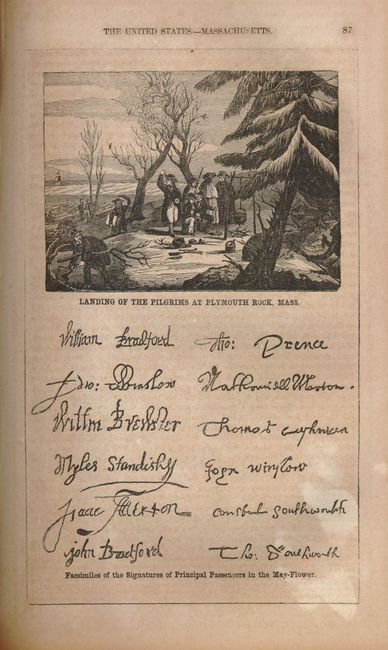 THE UNITED STATES.—MASSACHUSETTS. 87
LANDING OF THE PILGRIMS AT PLYMOUTH ROCK, MASS.
William Bradford Tho: Prence
Edw: Winslow Nathaniell Morton.
Willm Brewster Thomas Cushman
Myles Standish John Winslow
Isaac Allerton Constant Southworth
John Bradford Tho: Southworth
Facsimiles of the Signatures of Principal Passengers in the May-Flower.